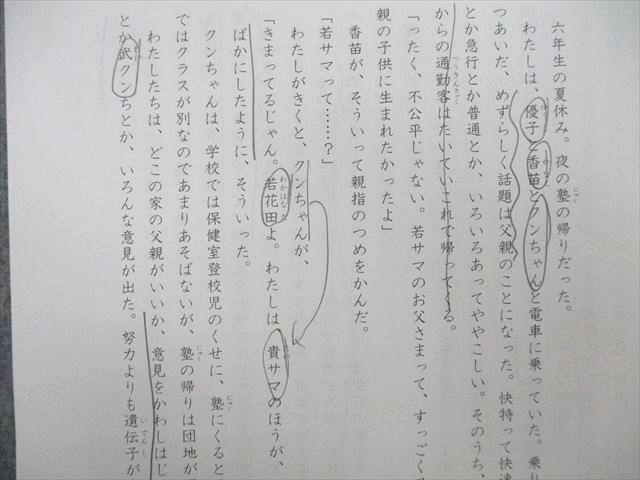 六年生の夏休み。夜の塾の帰りだった。
わたしは、優子と香苗とクンちゃんと電車に乗っていた。乗り
つあいだ、めずらしく話題は父親のことになった。快特って快速
とか急行とか普通とか、いろいろあってややこしい。そのうち、
からの通勤客はたいていこれで帰ってくる。
「ったく、不公平じゃない。若サマのお父さまって、すっごく
親の子供に生まれたかったよ」
香苗が、そういって親指のつめをかんだ。
「若サマって……？」
わたしがきくと、クンちゃんが、
「きまってるじゃん。若花田よ。わたしは貴サマのほうが、
ばかにしたように、そういった。
クンちゃんは、学校では保健室登校児のくせに、塾にくると
ではクラスが別なのであまりあそばないが、塾の帰りは団地が
わたしたちは、どこの家の父親がいいか、意見をかわしはじ
とか武クンちとか、いろんな意見が出た。努力よりも遺伝子が